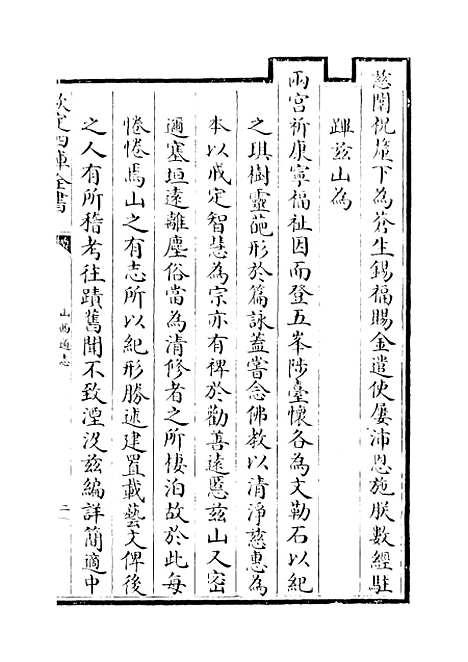 慈闈祝釐下為蒼生錫福賜金遣使屢沛恩施朕數經駐
蹕兹山為
兩宮祈康寧福祉因而登五峯陟臺懷各為文勒石以紀
之琪樹靈葩形於篇詠蓋嘗念佛教以清淨慈惠為
本以戒定智慧為宗亦有裨於勸善遠慝兹山又密
邇塞垣遠離塵俗當為清修者之所棲泊故於此每
惓惓焉山之有志所以紀形勝述建置載藝文俾後
之人有所稽考往蹟舊聞不致湮没兹編詳簡適中
欽定四庫全書
山西通志
二